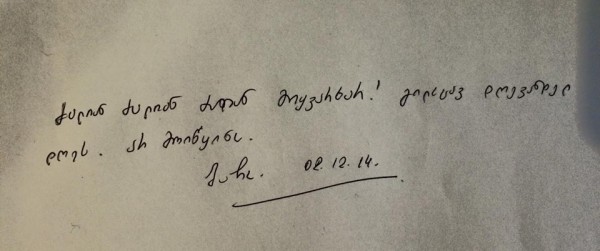 ძალიან ძალიან ძალიან მიყვარხარ! გილოცავ დღევანდელ
დღეს. არ მოიწყინო.
02.12.14.